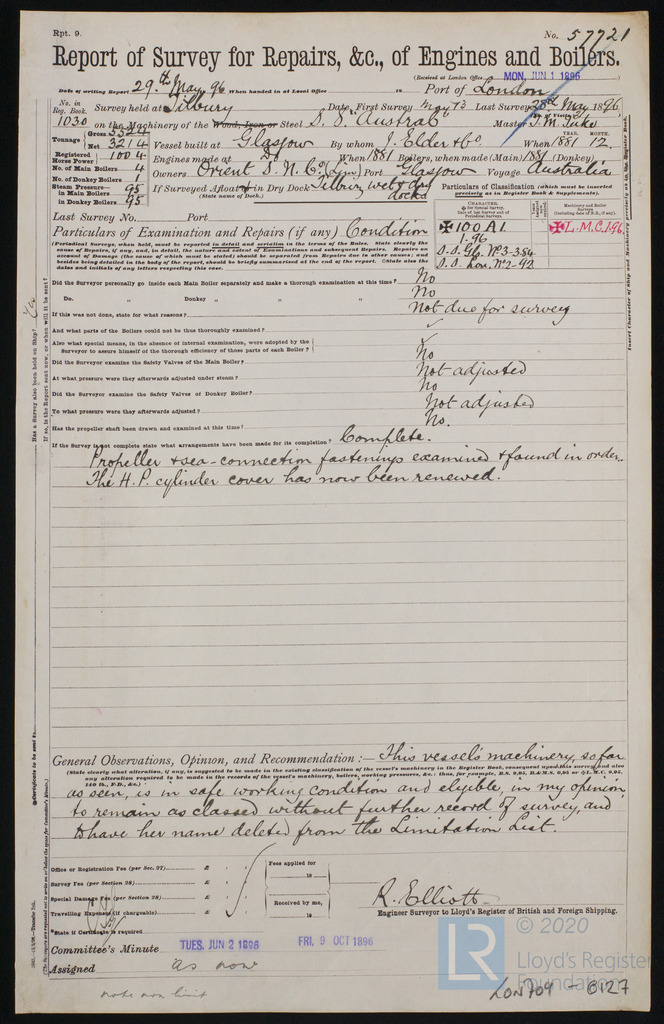 Rpt. 9.
No. 57721
Report of Survey for Repairs, &c., of Engines and Boilers.
(Received at London Office MON, JUN 1 1896
Date of writing Report 29th May 96 When handed in at Local Office 18 Port of London
No. in Reg. Book. Survey held at Tilbury Date, First Survey May 13 Last Survey 28th May 1896
1030 on the Machinery of the Wood, Iron or Steel S.S. "Austral" Master
Tonnage Gross 5524
Net 3214
Vessel built at Glasgow By whom J. Elder & Co. When 1881 YEAR. MONTH. 12
Registered Horse Power 1004
Engines made at Do When 1881 Boilers, when made (Main) 1881 (Donkey)
No. of Main Boilers 4
Owners Orient S. N. Co. Port Glasgow Voyage Australia
No. of Donkey Boilers 1
Steam Pressure— in Main Boilers 95
in Donkey Boilers 95
If Surveyed Afloat or in Dry Dock Tilbury wet & dry docks
(State name of Dock.)
Particulars of Classification (which must be inserted precisely as in Register Book & Supplements).
Last Survey No. Port
✠ 100 A1. ✠ L.M.C. 1.96
1.96
S.S. Gls. No. 3-3.84
S.S. Lon. No. 2-92
Particulars of Examination and Repairs (if any) Condition
(Periodical Surveys, when held, must be reported in detail and seriatim in the terms of the Rules. State clearly the
cause of Repairs, if any, and, in detail, the nature and extent of Examinations and subsequent Repairs. Repairs on
account of Damage (the cause of which must be stated) should be separated from Repairs due to other causes; and
besides being detailed in the body of the report, should be briefly summarised at the end of the report. State also the
dates and initials of any letters respecting this case.)
Did the Surveyor personally go inside each Main Boiler separately and make a thorough examination at this time? No
Do. „ Donkey „ „ „ No
If this was not done, state for what reasons? Not due for survey
And what parts of the Boilers could not be thus thoroughly examined?
Also what special means, in the absence of internal examination, were adopted by the
Surveyor to assure himself of the thorough efficiency of those parts of each Boiler?
Did the Surveyor examine the Safety Valves of the Main Boiler? No
At what pressure were they afterwards adjusted under steam? Not adjusted
Did the Surveyor examine the Safety Valves of Donkey Boiler? No
To what pressure were they afterwards adjusted? Not adjusted
Has the propeller shaft been drawn and examined at this time? No.
If the Survey is not complete state what arrangements have been made for its completion? Complete.
Propeller & sea-connection fastenings examined & found in order.
The H.P. cylinder cover has now been renewed.
Has a Survey also been held on Ship? Yes
If so, is the Report sent now, or when will it be sent?
General Observations, Opinion, and Recommendation :— This vessel's machinery, so far
as seen, is in safe working condition and eligible, in my opinion,
to remain as classed without further record of survey, and
to have her name deleted from the Limitation List.
Office or Registration Fee (per Sec. 27) £ : :
Survey Fee (per Section 28) £ : :
Special Damage Fee (per Section 28) £ : :
Travelling Expenses (if chargeable) £ : :
Fees applied for
18
Received by me,
18
R. Elliott
Engineer Surveyor to Lloyd's Register of British and Foreign Shipping.
*State if Certificate is required
Committee's Minute TUES. JUN 2 1896 FRI. 9 OCT 1896
Assigned as now
note non limit
© 2020
LR Lloyd's Register Foundation
LON 709 - 0127